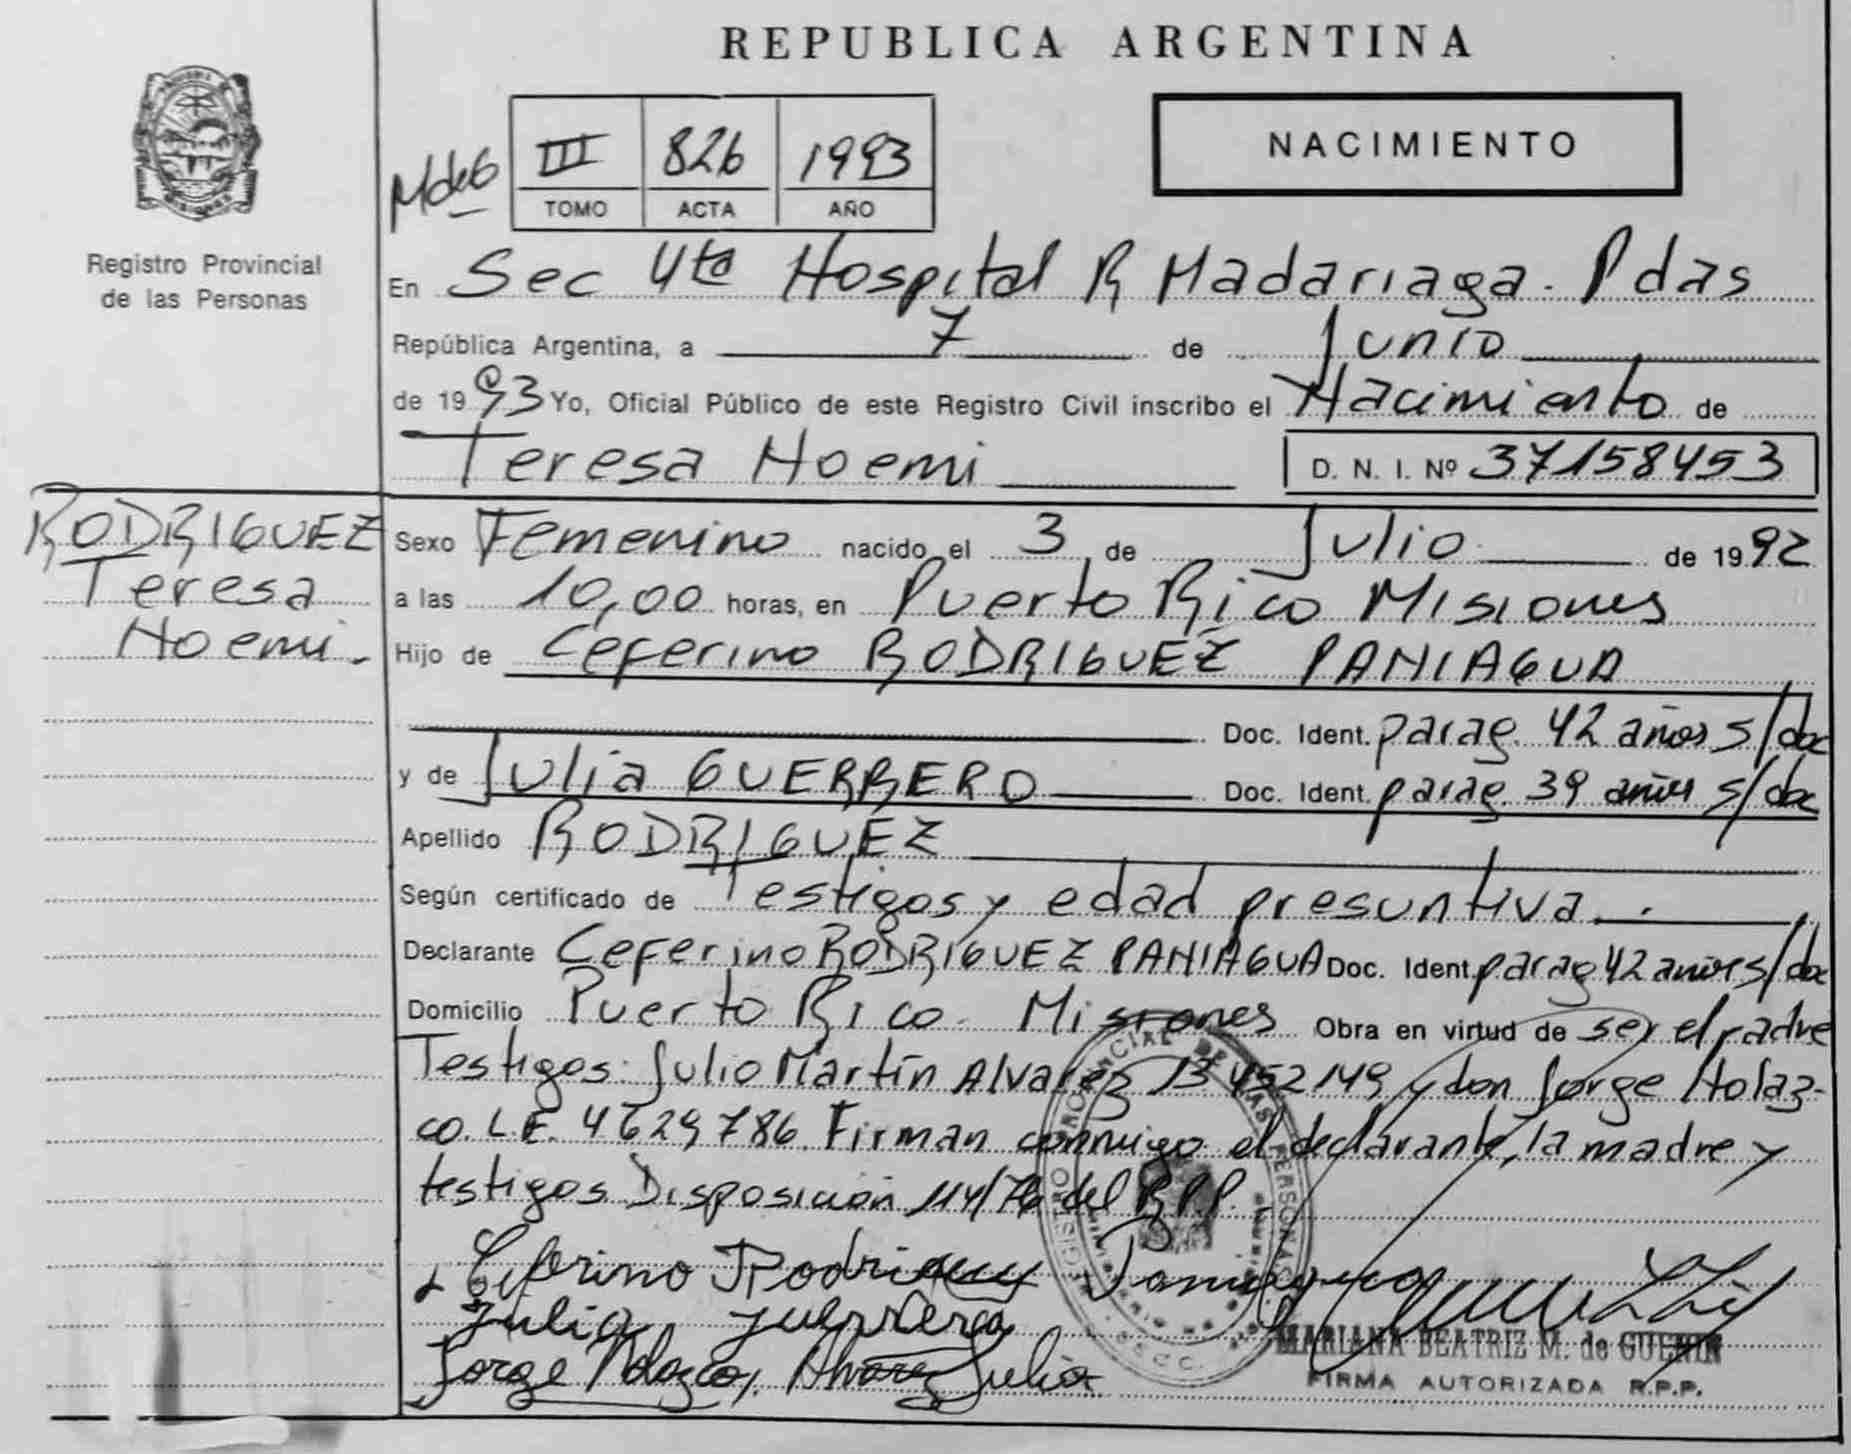 REPUBLICA ARGENTINA
NACIMIENTO
III 826 1993
TOMO ACTA AÑO
Registro Provincial
de las Personas
En Sec 4ta Hospital R Madariaga. Pdas
República Argentina, a 7 de Junio
de 1993 Yo, Oficial Público de este Registro Civil inscribo el Nacimiento de
Teresa Noemi D. N. I. Nº 37158453
RODRIGUEZ
Teresa
Noemi.
Sexo Femenino nacido el 3 de Julio de 1992
a las 10,00 horas, en Puerto Rico Misiones
Hijo de Ceferino RODRIGUEZ PANIAGUA
Doc. Ident. parag. 42 años s/doc
y de Julia GUERRERO Doc. Ident. parag. 39 años s/doc
Apellido RODRIGUEZ
Según certificado de Testigos y edad presuntiva.
Declarante Ceferino RODRIGUEZ PANIAGUA Doc. Ident. parag 42 años s/doc
Domicilio Puerto Rico. Misiones Obra en virtud de ser el padre
Testigos: Julio Martín Alvarez 13 452 149 y don Jorge Nolaz-
co. L.E. 4629786. Firman conmigo el declarante, la madre y
testigos Disposición 114/76 del R.P.P.
Ceferino Rodriguez Paniagua
Julia Guerrero
Jorge Nolazco, Alvarez Julio
REGISTRO PROVINCIAL DE LAS PERSONAS
MARIANA BEATRIZ M. de GUENIN
FIRMA AUTORIZADA R.P.P.